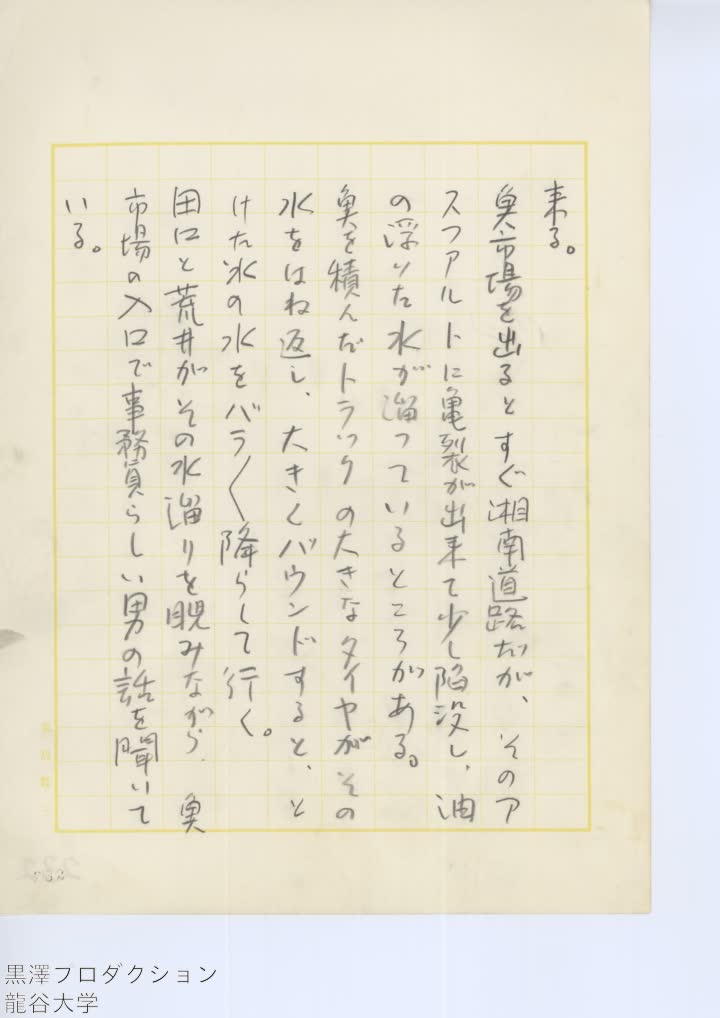 来る。
魚市場を出るとすぐ湘南道路だが、そのア
スファルトに亀裂が出来て少し陥没し、油
の浮いた水が溜っているところがある。
魚を積んだトラックの大きなタイヤがその
水をはね返し、大きくバウンドすると、と
けた氷の水をバラ〱降らして行く。
田口と荒井がその水溜りを睨みながら、魚
市場の入口で事務員らしい男の話を聞いて
いる。
232
黒澤プロダクション
龍谷大学